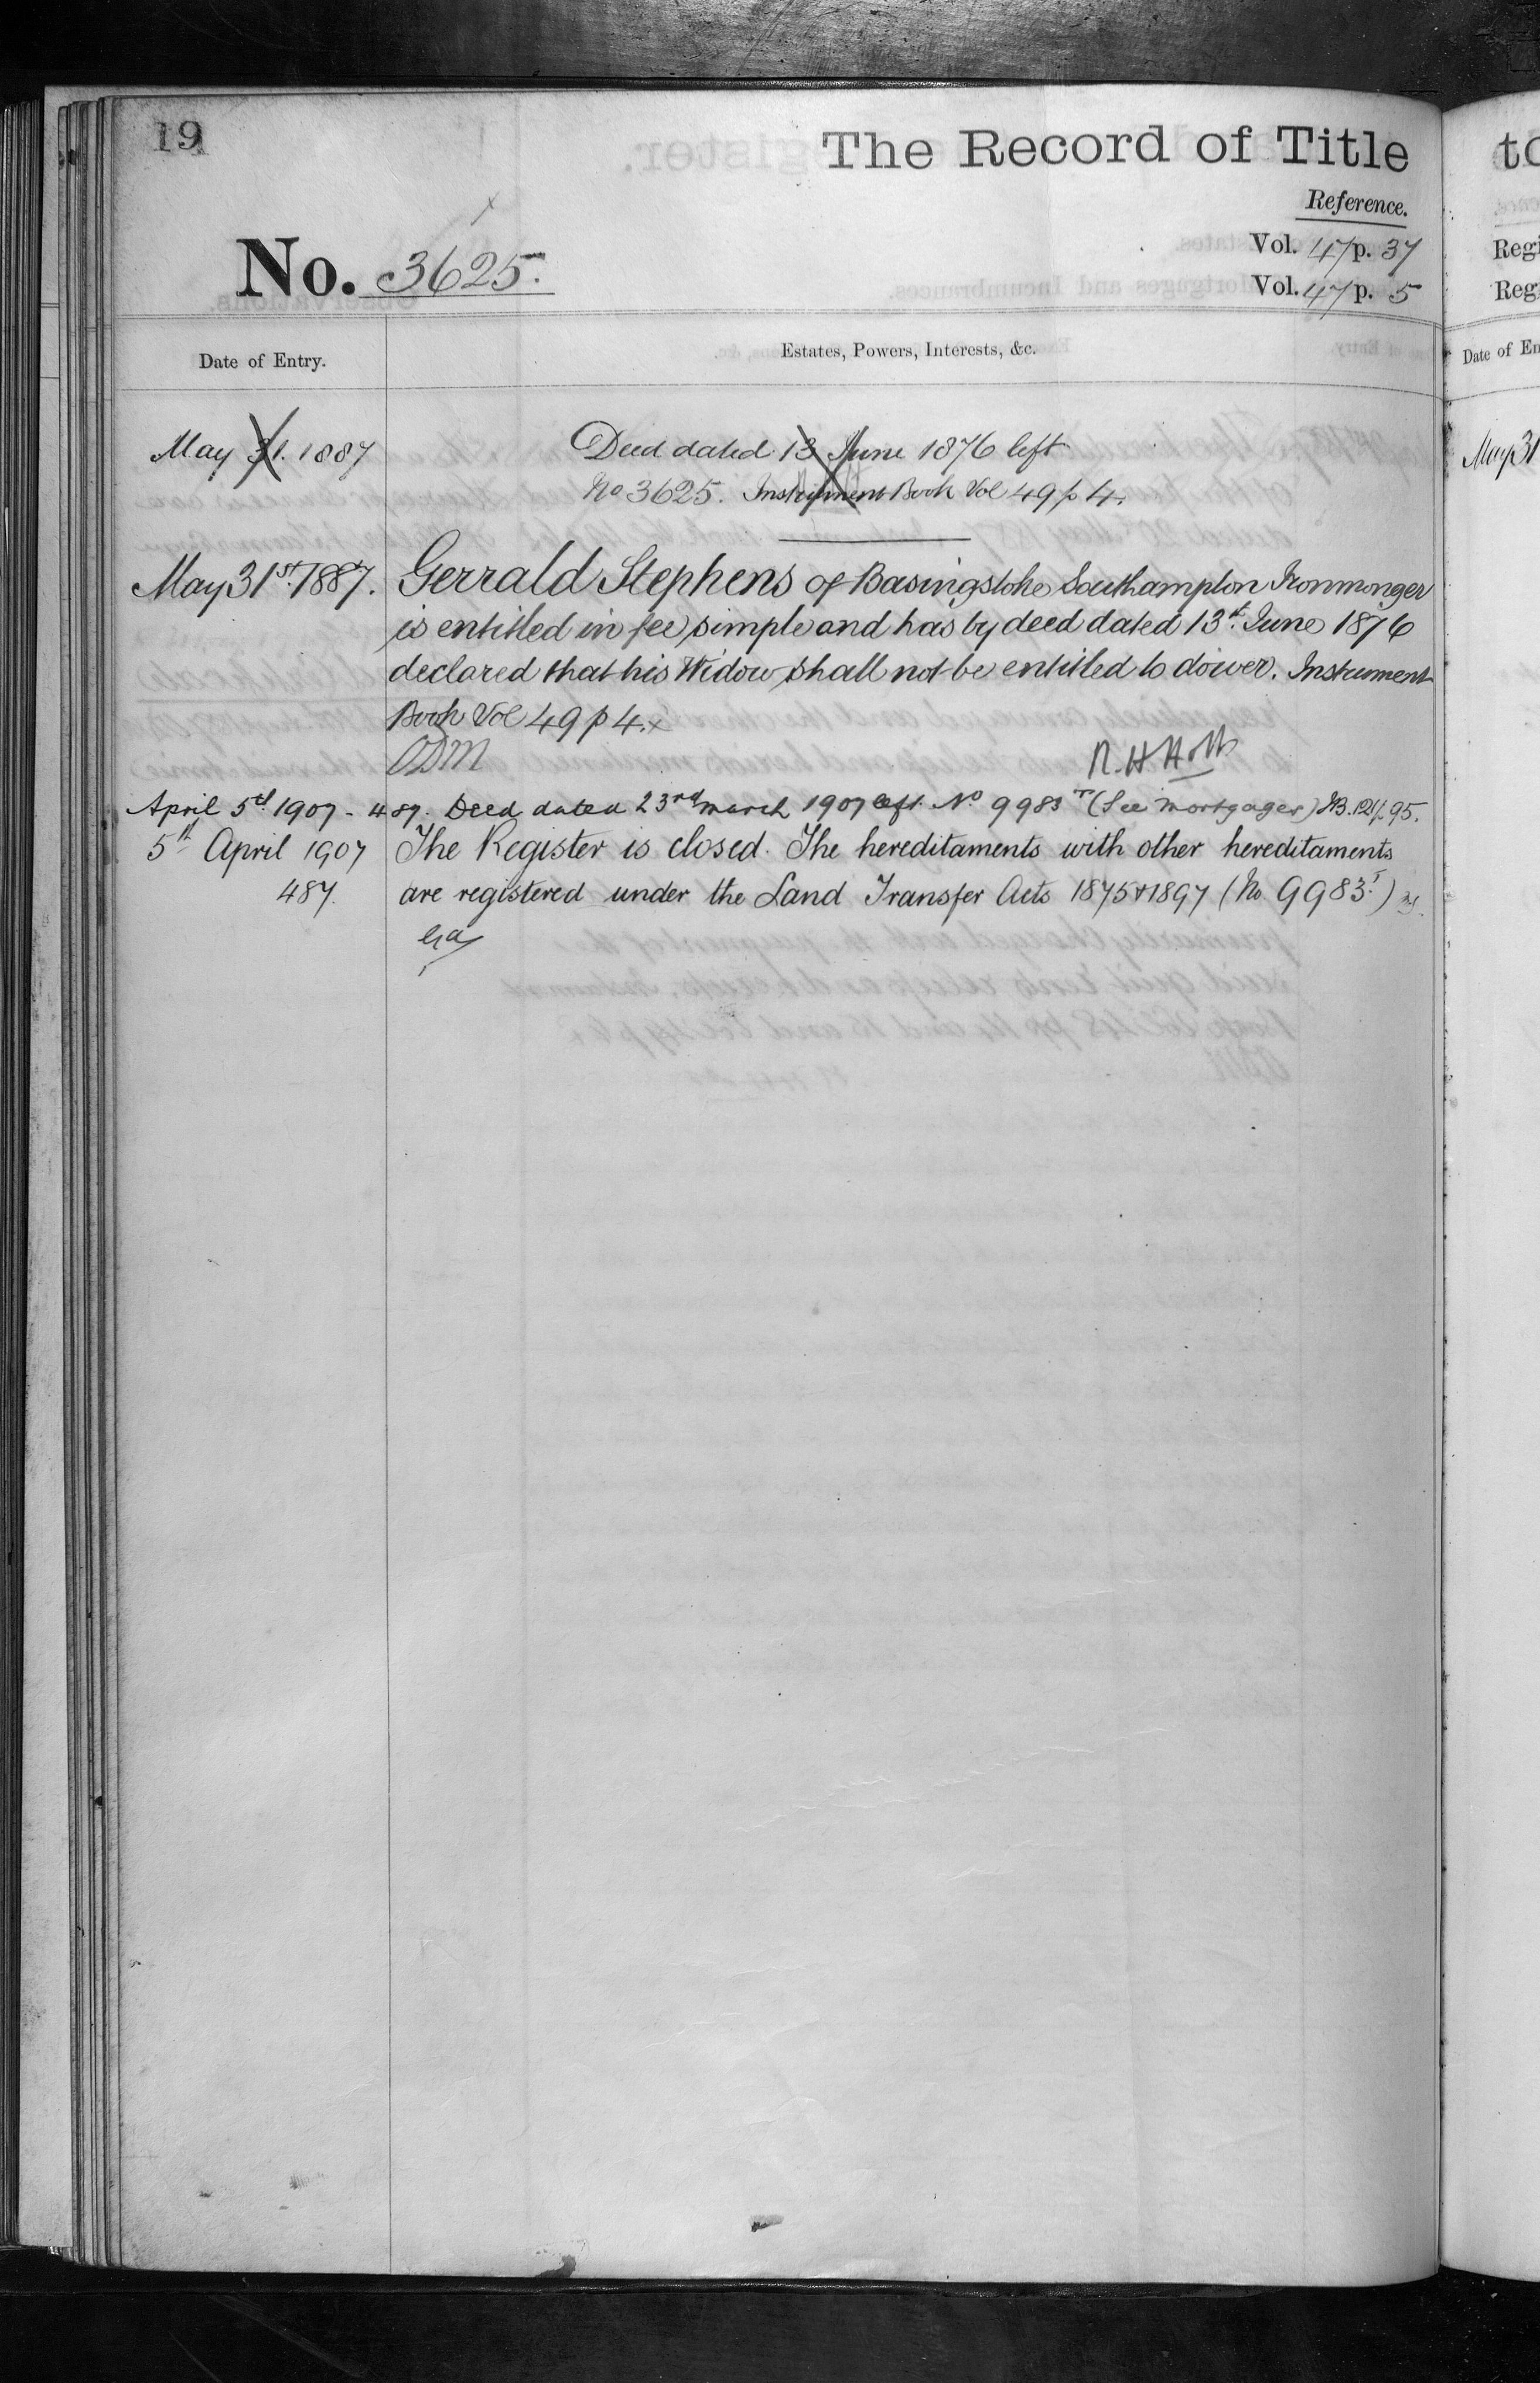 19
The Record of Title
Reference.
No. 3625.
Vol. 47 p. 37
Vol. 47 p. 5
Date of Entry.
Estates, Powers, Interests, &c.
May 31. 1887
Deed dated 13 June 1876 left
No 3625. Instrument Book Vol 49 p 4.
May 31st. 1887. Gerrald Stephens of Basingstoke Southampton Ironmonger
is entitled in fee simple and has by deed dated 13th. June 1876
declared that his Widow shall not be entitled to dower. Instrument
Book Vol 49 p 4.x
ODM
R. H Holt
April 5th 1907 - 487. Deed dated 23rd March 1907 left No 9983 T (See Mortgages) IB. 121/. 95.
5th April 1907 The Register is closed. The hereditaments with other hereditaments
487. are registered under the Land Transfer Acts 1875 & 1897 (No. 9983.T)
to
Regi
Reg
Date of En
May 31